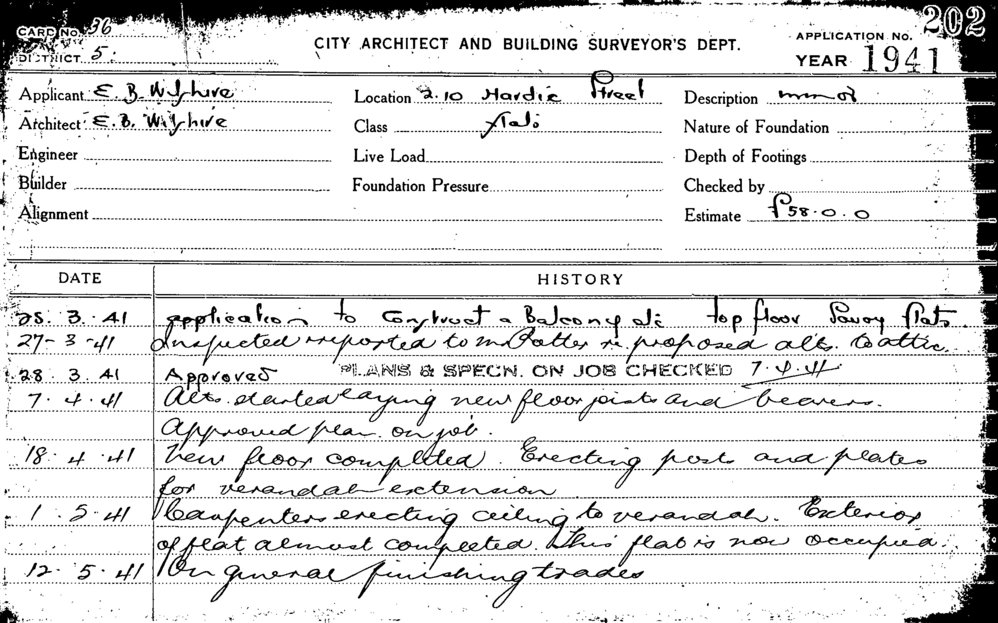 CARD No. 36
DISTRICT 5.
CITY ARCHITECT AND BUILDING SURVEYOR'S DEPT.
APPLICATION No. 202
YEAR 1941
Applicant E. B. Wilshire
Location 2.10 Hardie Street
Description
Architect E. B. Wilshire
Class flats
Nature of Foundation
Engineer
Live Load
Depth of Footings
Builder
Foundation Pressure
Checked by
Alignment
Estimate £58.0.0
DATE HISTORY
25. 3. 41 application to Construct a Balcony at top floor Savoy Flats.
27-3-41 Inspected & reported to Mr Potter re proposed alts. to attic.
28. 3. 41 Approved PLANS & SPECN. ON JOB CHECKED 7.4.41
7. 4. 41 Alts. started laying new floor joists and bearers.
Approved plan on job.
18. 4. 41 New floor completed. Erecting posts and plates
for verandah extension
1. 5. 41 Carpenters erecting ceiling to verandah. Exterior
of flat almost completed. This flat is now occupied.
12. 5. 41 On general finishing trades